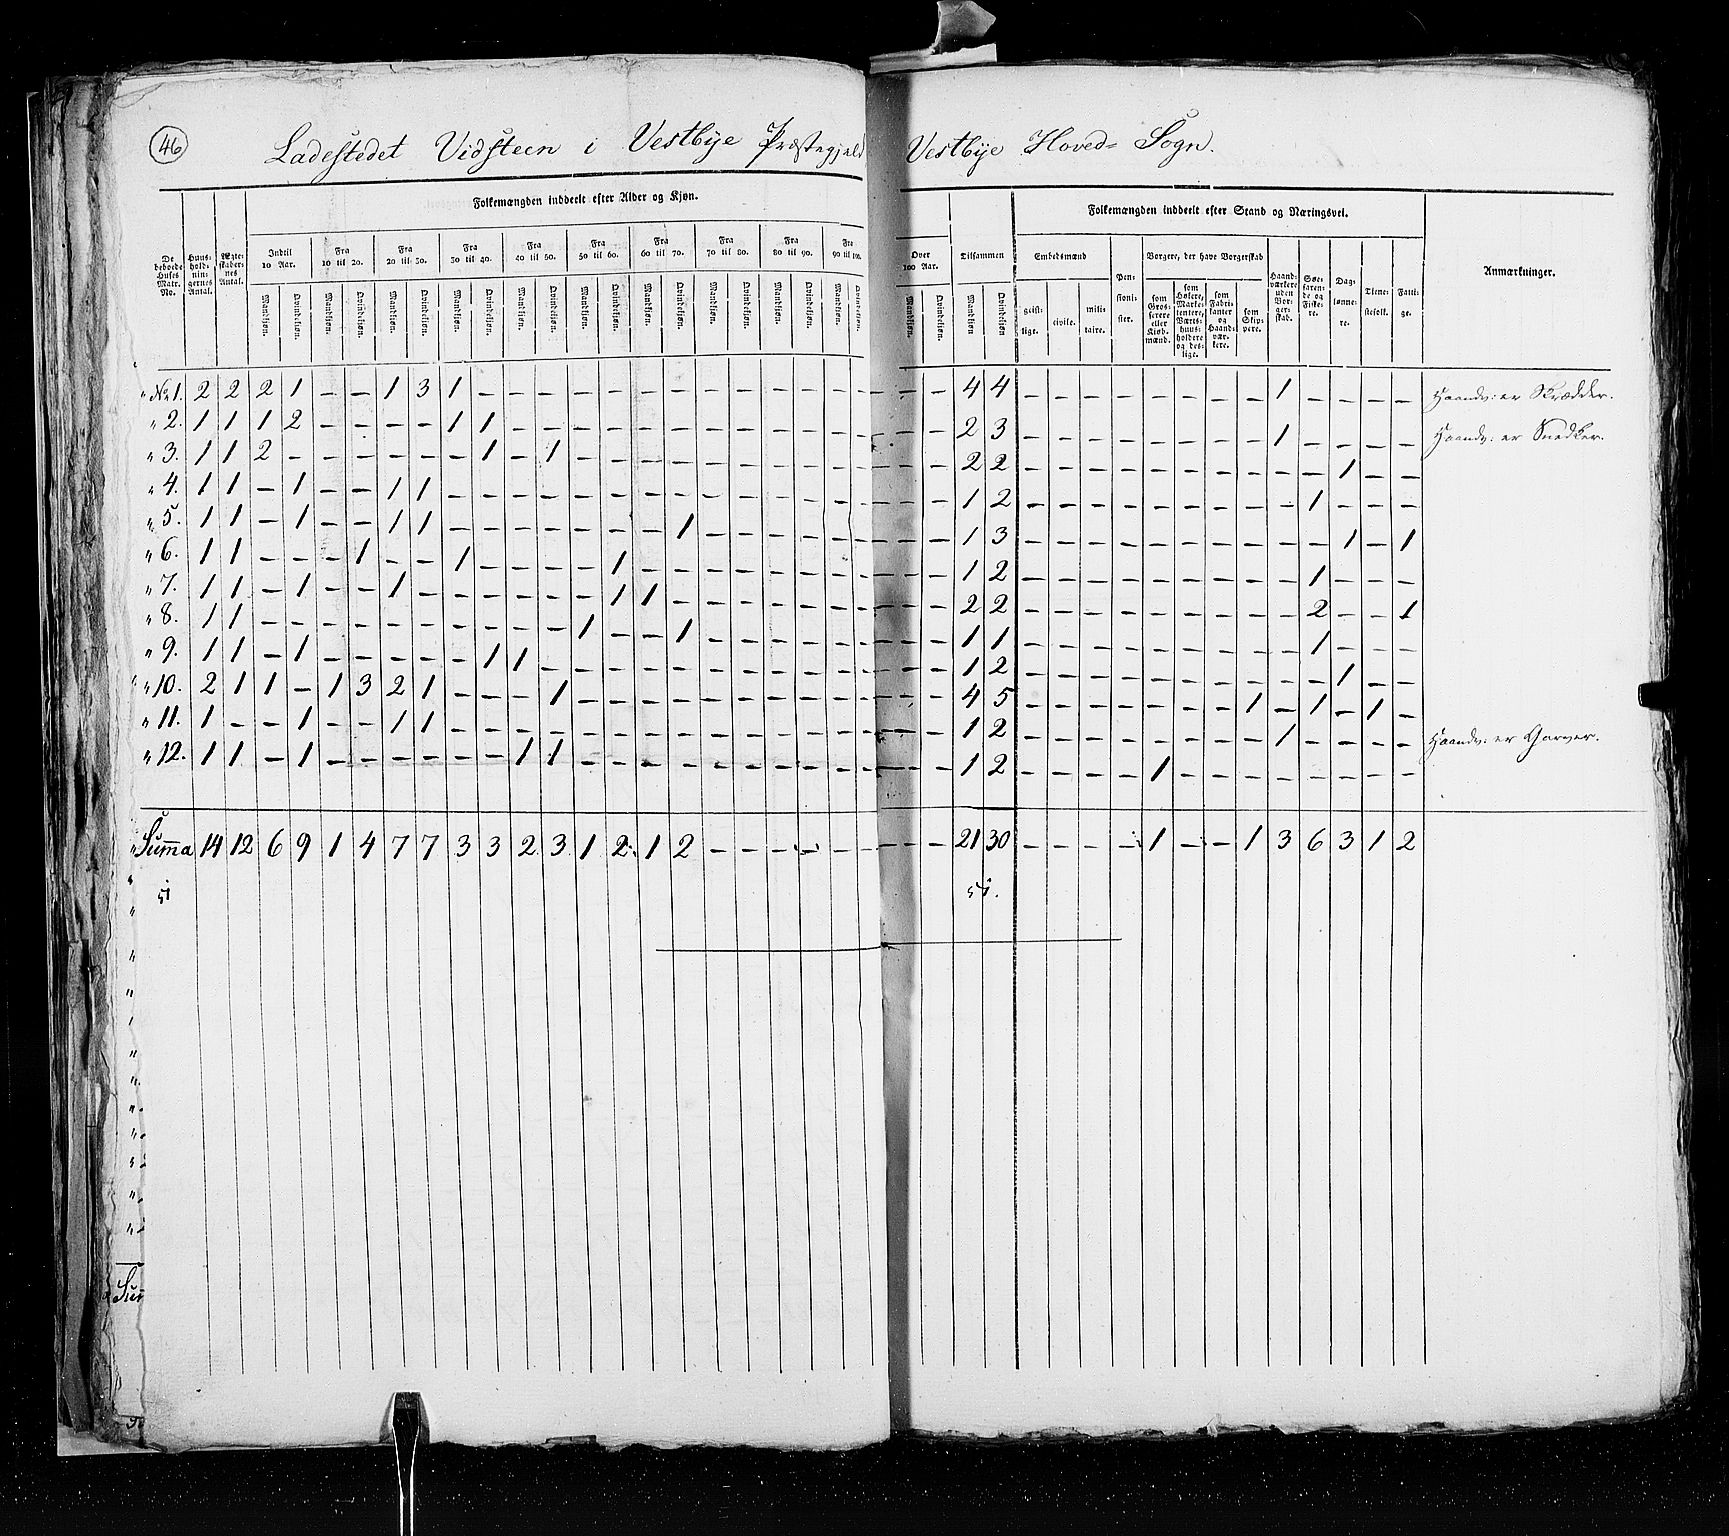 46
Ladestedet Vidsteen i Vestbye Præstegjeld, Vestbye Hoved=Sogn.
Folkemængden inddeelt efter Alder og Kjøn.
Folkemængden inddeelt efter Stand og Næringsvei.
De beboede Huses Matr. No.
Huusholdningernes Antal.
Ægteskabernes Antal.
Indtil 10 Aar. Fra 10 til 20. Fra 20 til 30. Fra 30 til 40. Fra 40 til 50. Fra 50 til 60. Fra 60 til 70. Fra 70 til 80. Fra 80 til 90. Fra 90 til 100. Over 100 Aar. Tilsammen
Mandkjøn. Qvindekjøn. Mandkjøn. Qvindekjøn. Mandkjøn. Qvindekjøn. Mandkjøn. Qvindekjøn. Mandkjøn. Qvindekjøn. Mandkjøn. Qvindekjøn. Mandkjøn. Qvindekjøn. Mandkjøn. Qvindekjøn. Mandkjøn. Qvindekjøn. Mandkjøn. Qvindekjøn. Mandkjøn. Qvindekjøn. Mandkjøn Qvindekjøn
Embedsmænd
geistlige. civile. militaire.
Pensionister.
Borgere, der have Borgerskab
som Grosserere eller Kjøbmænd.
som Høkere, Marketentere, Værtshuusholdere og deslige.
som Fabrikanter og Haandværkere.
som Skippere.
Haandværkere uden Borgerskab.
Søefarende og Fiskere.
Daglønnere.
Tjenestefolk.
Fattige.
Anmærkninger.
" No 1. 2 2 2 1 – – 1 3 1 – – – – – – – – – – – – – – – – 4 4 – – – – – – – – 1 – – – – Haandv: er Skrædder.
" 2. 1 1 1 2 – – – – 1 1 – – – – – – – – – – – – – – 2 3 – – – – – – – – 1 – – – – Haandv: er Snedker.
" 3. 1 1 2 – – – – – – 1 – 1 – – – – – – – – – – – – 2 2 – – – – – – – – – – 1 – –
" 4. 1 1 – 1 – – 1 1 – – – – – – – – – – – – – – – – 1 2 – – – – – – – – – 1 – – –
" 5. 1 1 – 1 – – 1 1 – – – – – – – 1 – – – – – – – – 1 3 – – – – – – – – – – 1 – 1
" 6. 1 1 – – – 1 – – 1 – – – – 1 – – – – – – – – – – 1 2 – – – – – – – – – 1 – – –
" 7. 1 1 – 1 – – 1 – – – – – – 1 1 – – – – – – – – – 2 2 – – – – – – – – – 2 – – 1
" 8. 1 1 – – – – – – – – – – 1 – – 1 – – – – – – – – 1 1 – – – – – – – – – 1 – – –
" 9. 1 1 – 1 – – – – – 1 1 – – – – – – – – – – – – – 1 2 – – – – – – – – – – 1 – –
" 10. 2 1 1 – 1 3 2 1 – – – 1 – – – – – – – – – – – – 4 5 – – – – – – – 1 – 1 – 1 –
" 11. 1 – – 1 – – 1 1 – – – – – – – – – – – – – – – – 1 2 – – – – – – – – 1 – – – – Haandv: er Garver.
" 12. 1 1 – 1 – – – – – – 1 1 – – – – – – – – – – – – 1 2 – – – – 1 – – – – – – – –
Summa 14 12 6 9 1 4 7 7 3 3 2 3 1 2 1 2 – – – – – – – – 21 30 – – – – 1 – – 1 3 6 3 1 2
51 51.